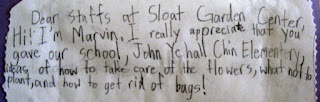 Dear staffs at Sloat Garden Center,
Hi! I'm Marvin, I really appreciate that you
gave our school, John Yehall Chin Elementry,
ideas of how to take care of the flowers, what not to
plant, and how to get rid of bags!